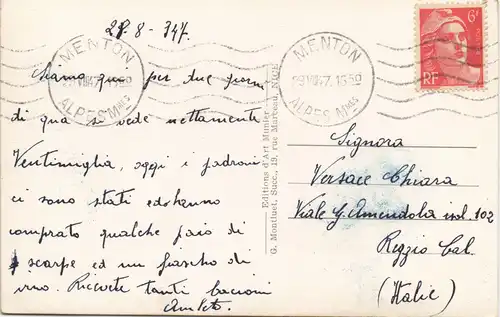 29-8-947
MENTON
29 VIII 47. 1559
ALPES Mmes
MENTON
29 VIII 47. 1559
ALPES Mmes
6F
RF
siamo qui per due giorni
di qua si vede nettamente
Ventimiglia, oggi i padroni
ci sono stati ed hanno
comprato qualche paio di
scarpe ed un fiasco di
vino. Ricevete tanti bacioni
Amleto.
Editions d'Art Munier
G. Montluet, Succ., 19, rue Marceau, NICE
Signora
Versace Chiara
Viale G. Amendola isol. 102
Reggio Cal.
(Italie)